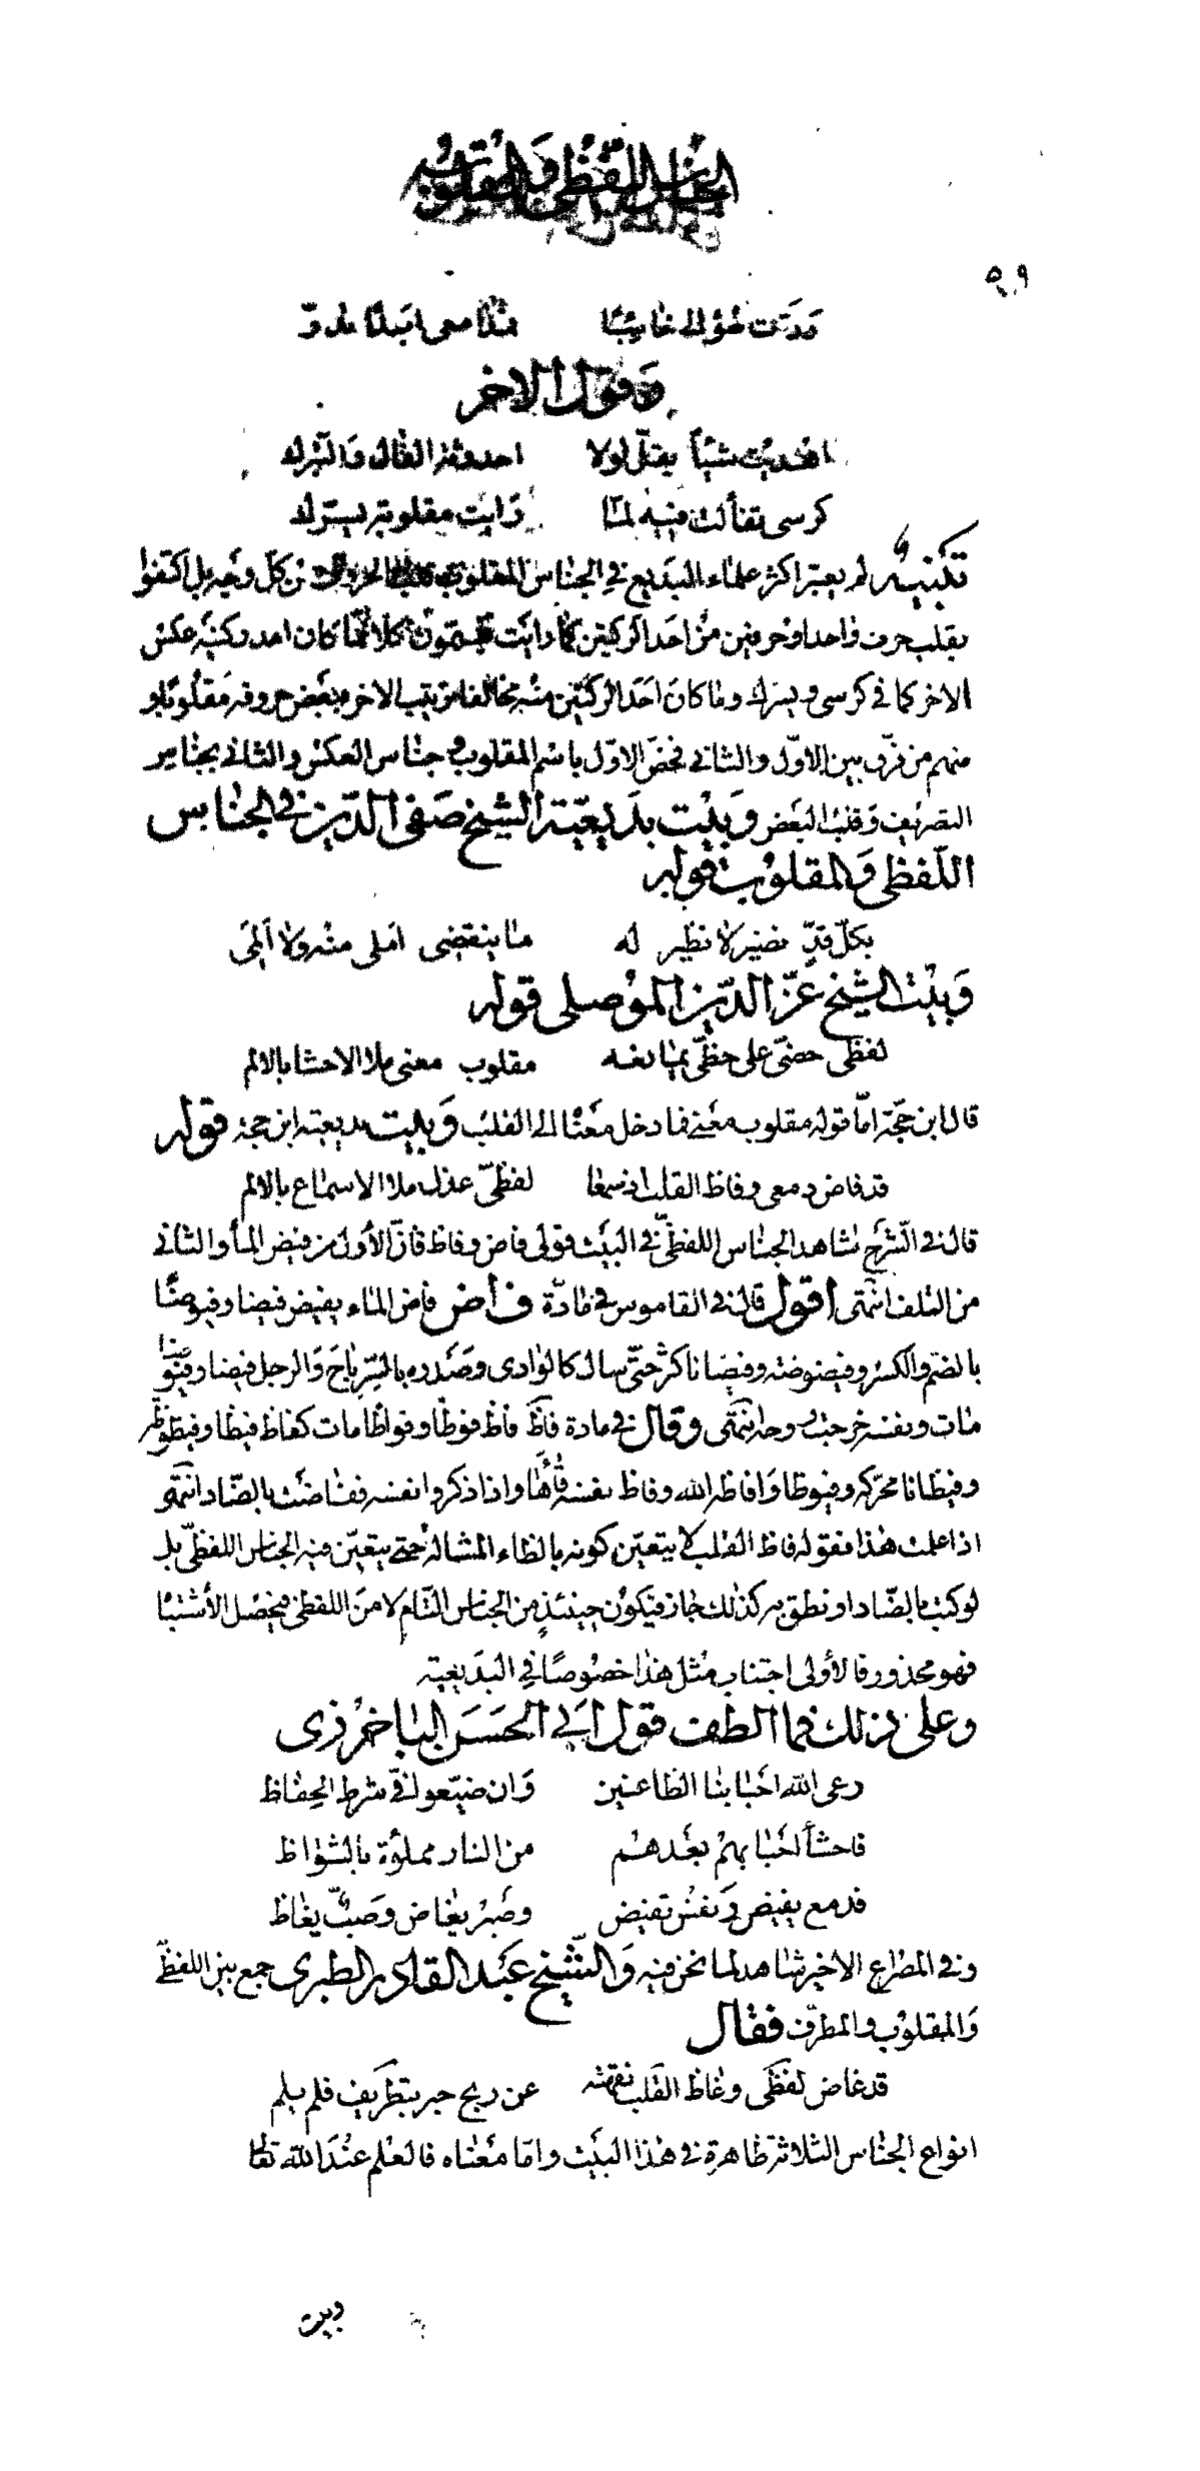 الجناس اللفظي والمقلوب
٥٩
وقول الاخر
اهديت شيئاً يقلّ لولا احدوثة الفال والتبرك
كرسى تفألت فيه لمّا رايت مقلوبه يسرك
تنبيه لم يعتبر اكثر علماء البديع في الجناس المقلوب قلب الحروف من كل وجه بل اكتفوا
بقلب حرف واحد او حرفين من احد الركنين كما رايت كان احد ركنيه عكس
الاخر كما في كرسى ويسرك وما كان احد الركنين منه مخالفا ترتيب الاخر ببعض حروفه مقلوبا و
منهم من فرّق بين الاوّل والثاني فخصّ الاوّل باسم المقلوب و جناس العكس والثاني بجناس
التصريف وقلب البعض وبيت بديعيّة الشيخ صفى الدّين في الجناس
اللّفظى والمقلوب قوله
بكلّ قدّ نضير لا نظير له ما ينقضى املى منه ولا ألمى
وبيت الشيخ عزّ الدّين الموصلى قوله
لفظى حضّى على حظّى مقلوب معنى ملا الاحشا بالالم
قال ابن حجّة امّا قوله مقلوب معنى فما دخل معنا الى القلب وبيت بديعيته ابن حجة قوله
قد فاض دمعى وفاظ القلب اذ سمعا لفظىّ عذل ملا الاسماع بالالم
قال في الشرح شاهد الجناس اللفظىّ في البيت قولى فاض وفاظ فانّ الأول من فيض الماء والثاني
من التلف انتهى اقول قال في القاموس في مادّة فاض فاض الماء يفيض فيضا وفيوضا
بالضمّ والكسر وفيضوضة وفيضانا كثر حتّى سال كالوادى وصدره بالسّرّ باح والرجل فيضا وفيوضا
مات ونفسه خرجت روحه انتهى وقال في مادة فاظ فاظ فوظا وفواظا مات كفاظ فيظا وفيظوظة
وفيظانا محرّكه وفيوظا وافاظه الله وفاظ نفسه قاءها واذا ذكروا نفسه ففاضت بالضّاد انتهى
اذا علمت هذا فقوله فاظ القلب لا يتعيّن كونه بالظاء المشالة حتى يتعيّن فيه الجناس اللفظىّ بل
لو كتب بالضّاد او نطق به كذلك جاز فيكون حينئذٍ من الجناس التّام لا من اللفظى فيحصل الأشتبا
فهو محذور فالأولى اجتناب مثل هذا خصوصًا في البديعية
وعلى ذلك فما الطف قول ابى الحسن الباخرزى
رعى الله احبابنا الظاعنين وان ضيّعوا فىّ شرط الحفاظ
فاحشأ احبابهم بعدهم من النار مملؤة بالشواظ
فدمع يفيض ونفس تفيض وصبر يغاض وصبّ يغاظ
وفي المصراع الاخير شاهد لما نحن فيه والشيخ عبد القادر الطبرى جمع بين اللفظىّ
والمقلوب والمطرّف فقال
قد غاض لفظى وغاظ القلب عن ربح حبر بتطريف فلم يلم
انواع الجناس الثلاثة ظاهرة في هذا البيت وامّا معناه فالعلم عند الله تعا
وبيت